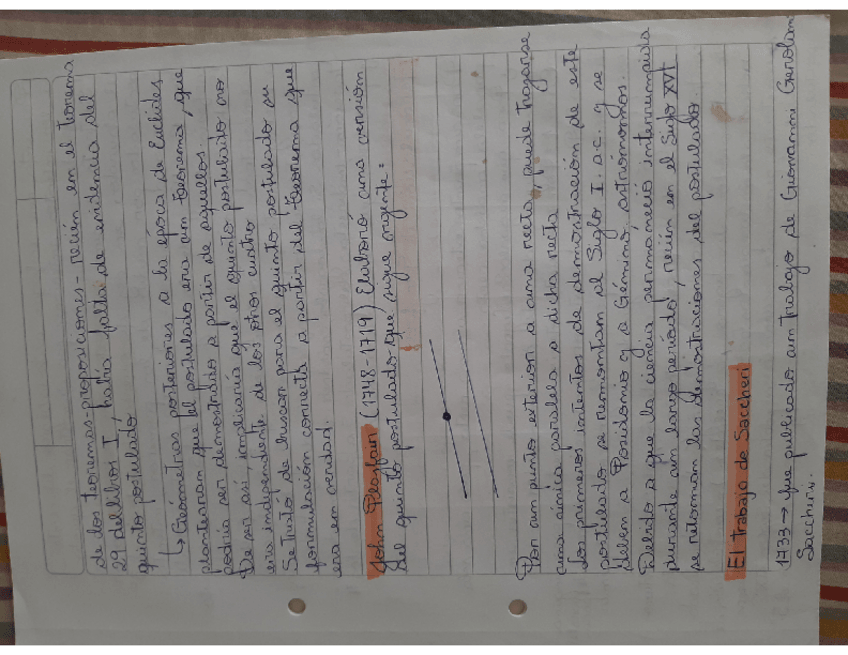 de los teoremas-proposiciones - recién en el teorema
29 del libros I, había falta de evidencia del
quinto postulado.
↳ Geómetras posteriores a la época de Euclides
plantearon que el postulado era un teorema, que
podría ser demostrado a partir de aquellos.
De ser así, implicaría que el quinto postulado no
era independiente de los otros cuatro
Se trató de buscar para el quinto postulado su
formulación correcta a partir del teorema que
era en verdad.
John Playfair (1748-1719) Elaboró una versión
del quinto postulado que sigue vigente:
Por un punto exterior a una recta, puede trazarse
una única paralela a dicha recta
Los primeros intentos de demostración de este
postulado se remontan al Siglo I. a.c. y se
deben a Posidonio y a Gémino astrónomos.
Debido a que la ciencia permaneció interrumpida
durante un largo período, recién en el Siglo XVI
se retoman las demostraciones del postulado.
El trabajo de Saccheri
1733 → fue publicado un trabajo de Giovanni Gerolam
Saccheri.